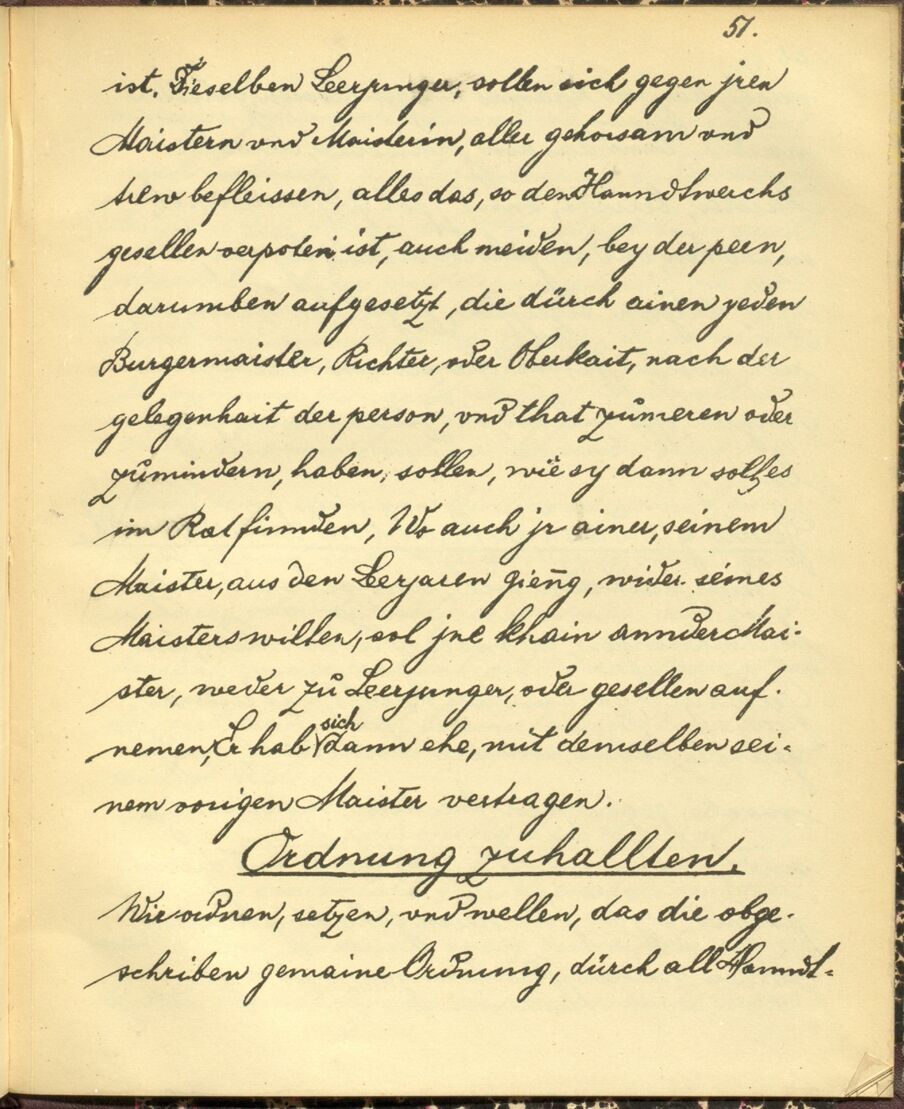 51.
ist. Dieselben Leerjunger, sollen sich gegen jren
Maistern vnd Maisterin, aller gehorsam vnd
trew befleissen, alles das, so den Hanndtwerchs
gesellen verpoten ist, auch meiden, bey der peen,
darumben aufgesetzt, die dürch ainen yeden
Burgermaister, Richter, oder Oberkait, nach der
gelegenhait der person, vnd that zůmeren oder
zůmindern, haben, sollen, wie sy dann solhes
im Rat finnden, Wo auch jr ainer, seinem
Maister, aus den Leerjaren gieng, wider seines
Maisters willen, sol jne khain annder Mai-
ster, weder zů Leerjunger, oder gesellen auf-
nemen, Er hab sich dann ehe, mit demselben sei-
nem vorigen Maister vertragen.
Ordnung zuhallten.
Wir ordnen, setzen, vnd wellen, das die obge-
schriben gemaine Ordnung, dürch all Hanndt-